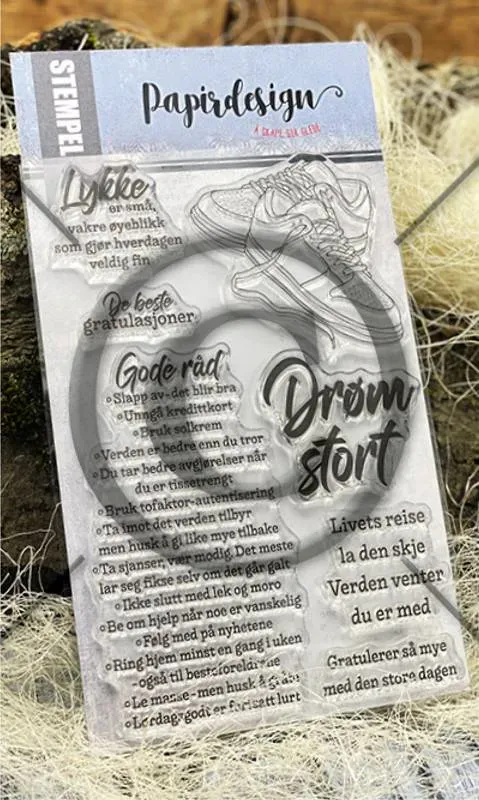 STEMPEL
Papirdesign
Å SKAPE GIR GLEDE
Lykke
er små,
vakre øyeblikk
som gjør hverdagen
veldig fin
De beste
gratulasjoner
Gode råd
Slapp av - det blir bra
Unngå kredittkort
Bruk solkrem
Verden er bedre enn du tror
Du tar bedre avgjørelser når
du er tissetrengt
Bruk tofaktor-autentisering
Ta imot det verden tilbyr
men husk å gi like mye tilbake
Ta sjanser, vær modig. Det meste
lar seg fikse selv om det går galt
Ikke slutt med lek og moro
Be om hjelp når noe er vanskelig
Følg med på nyhetene
Ring hjem minst en gang i uken
- også til besteforeldrene
Le masse - men husk å gråte
Lørdagsgodt er fortsatt lurt
Drøm
stort
Livets reise
la den skje
Verden venter
du er med
Gratulerer så mye
med den store dagen